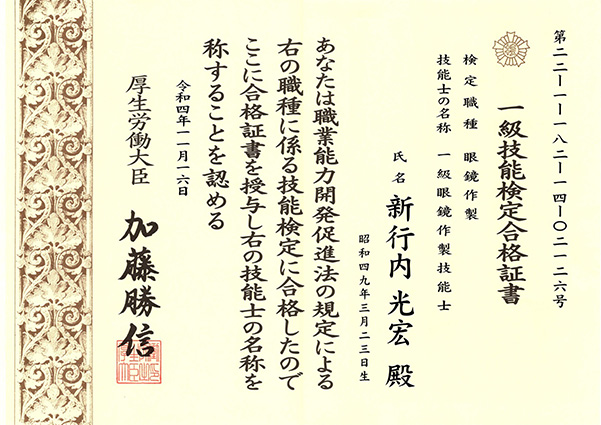 第二二―一―一八二―一四―〇二一二六号
一級技能検定合格証書
検定職種 眼鏡作製
技能士の名称 一級眼鏡作製技能士
氏名 新行内 光宏 殿
昭和四九年三月二三日生
あなたは職業能力開発促進法の規定による
右の職種に係る技能検定に合格したので
ここに合格証書を授与し右の技能士の名称を
称することを認める
令和四年一一月一六日
厚生労働大臣 加藤勝信